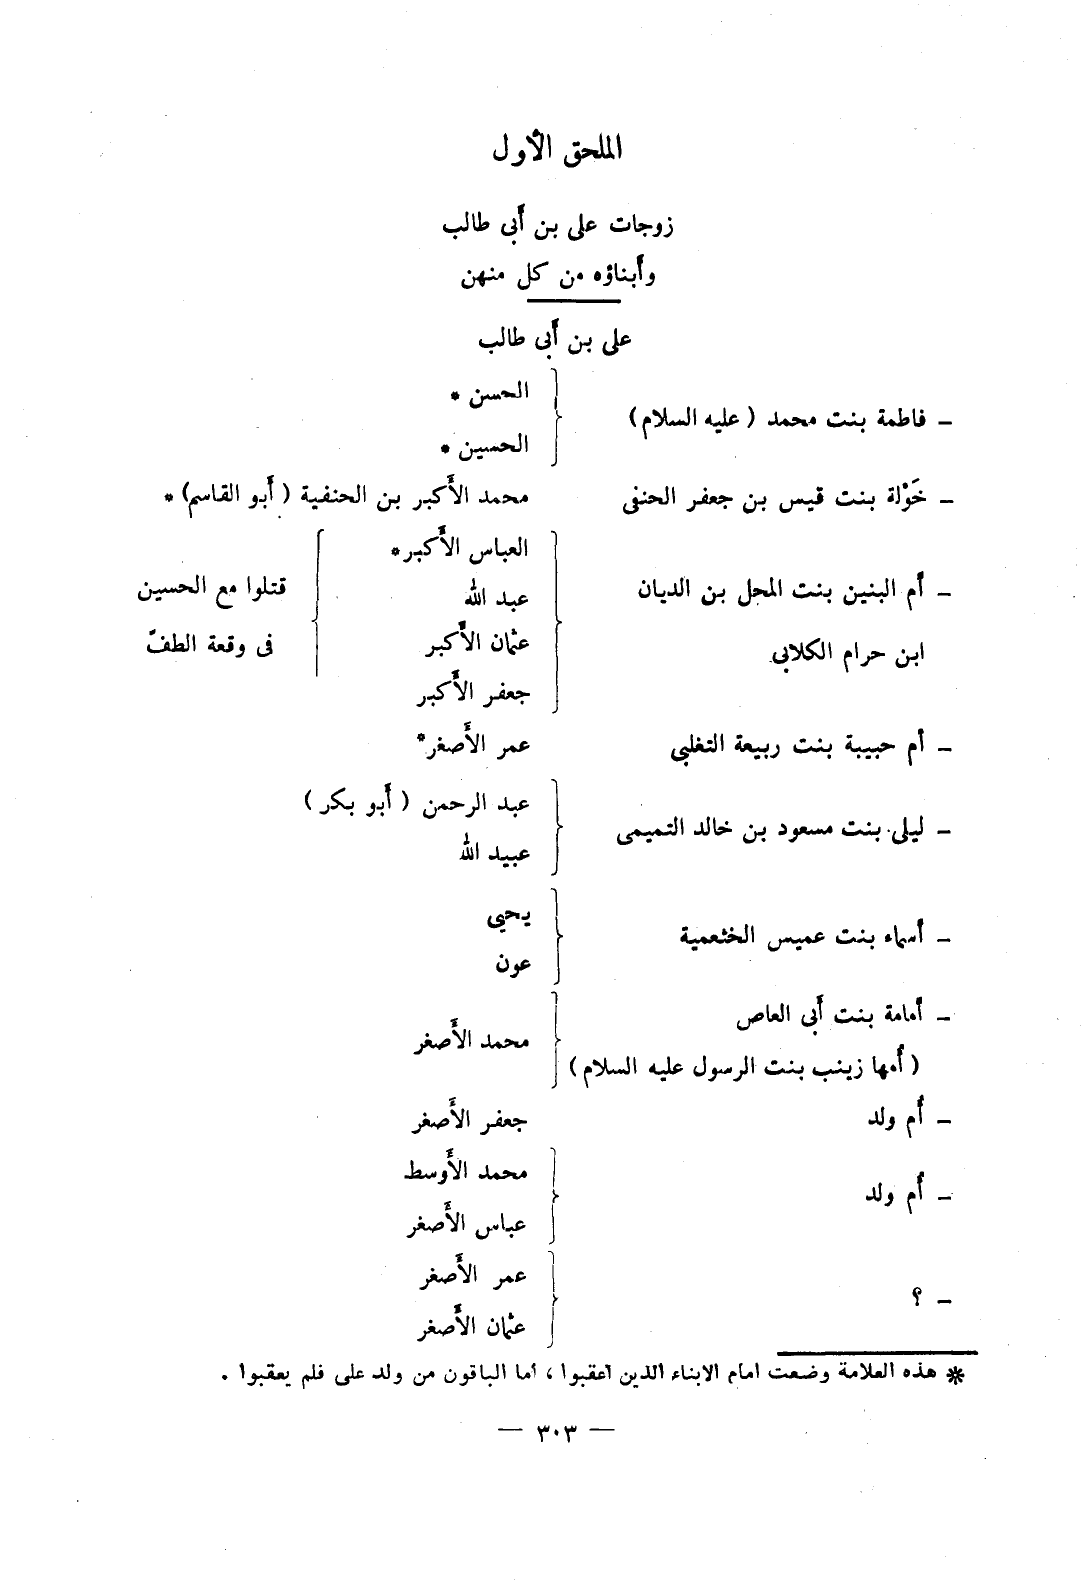 الملحق الأول
زوجات على بن أبى طالب
وأبناؤه من كل منهن
على بن أبى طالب
– فاطمة بنت محمد ( عليه السلام )
الحسن *
الحسين *
– خَوْلة بنت قيس بن جعفر الحنفى
محمد الأكبر بن الحنفية ( أبو القاسم ) *
– أم البنين بنت المحل بن الديان
ابن حرام الكلابى
العباس الأكبر *
عبد الله
عثمان الأكبر
جعفر الأكبر
قتلوا مع الحسين
فى وقعة الطفّ
– أم حبيبة بنت ربيعة التغلبى
عمر الأصغر *
– ليلى بنت مسعود بن خالد التميمى
عبد الرحمن ( أبو بكر )
عبيد الله
– أسماء بنت عميس الخثعمية
يحيى
عون
– أمامة بنت أبى العاص
( أمها زينب بنت الرسول عليه السلام )
محمد الأصغر
– أم ولد
جعفر الأصغر
– أم ولد
محمد الأوسط
عباس الأصغر
– ؟
عمر الأصغر
عثمان الأصغر
* هذه العلامة وضعت امام الابناء الذين اعقبوا ، اما الباقون من ولد على فلم يعقبوا .
— ٣٠٣ —